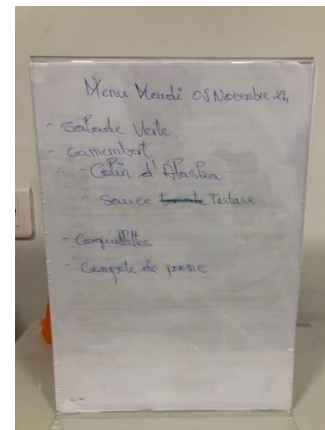 Menu Mardi 05 Novembre 24
- Salade Verte
- Camembert
- Colin d'Alaska
- Sauce Tartare
- Coquillettes
- Compote de pomme